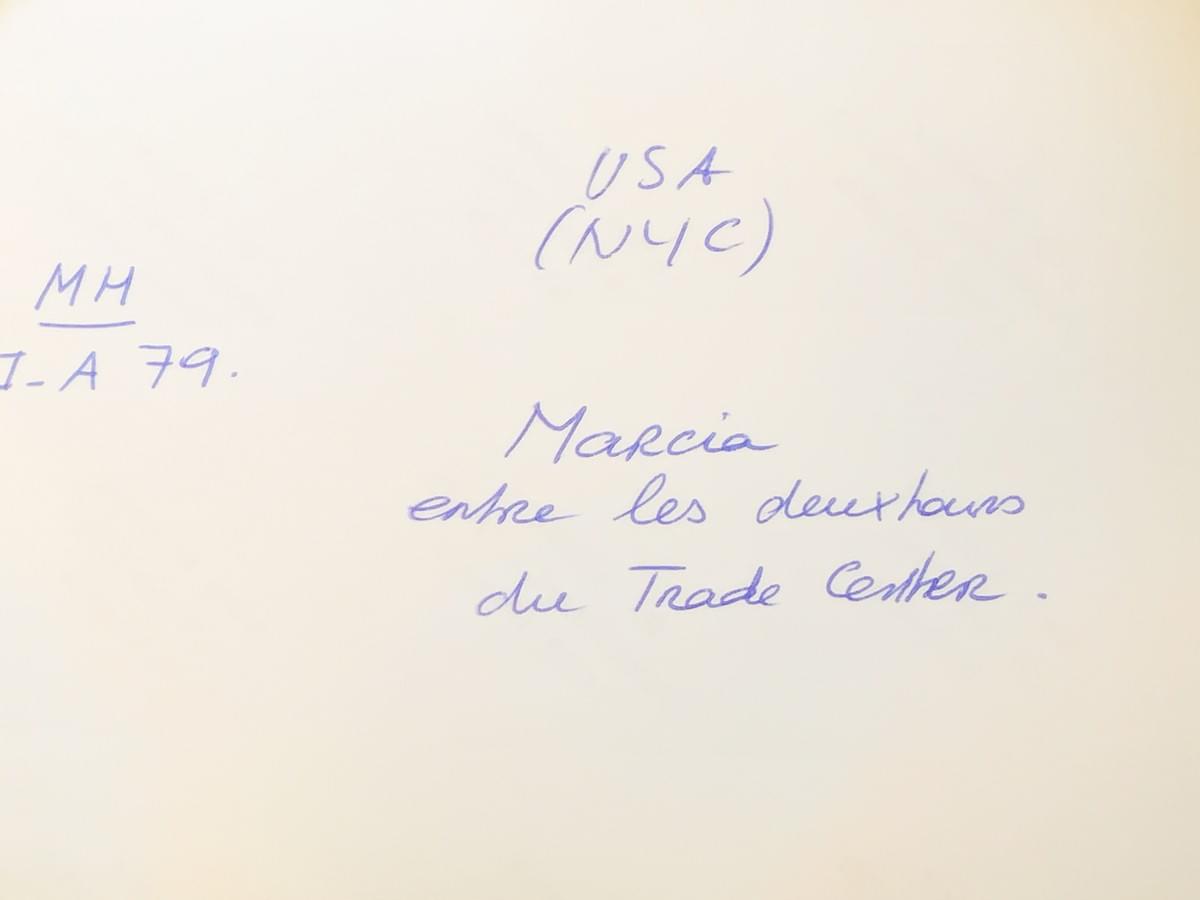 USA
(NYC)
MH
I-A 79.
Marcia
entre les deux tours
du Trade Center.